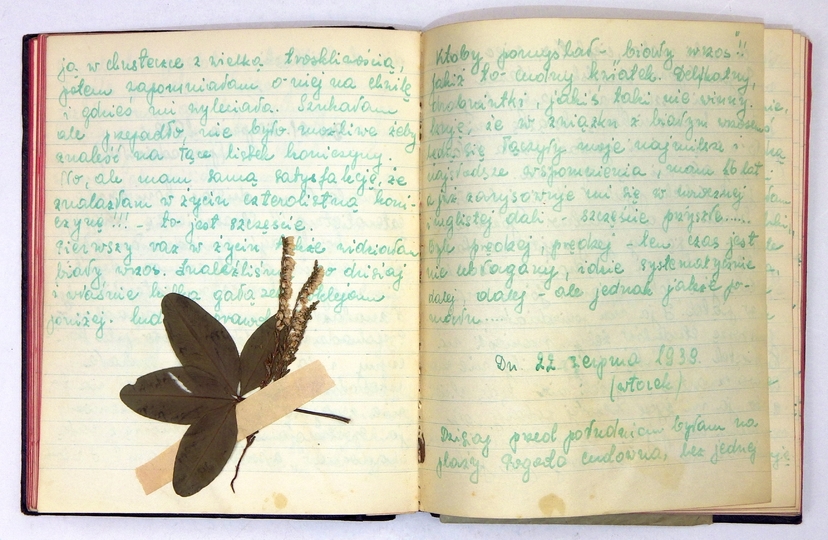 ją w chusteczce z wielką troskliwością,
potem zapomniałam o niej na chwilę
i gdzieś mi wyleciała. Szukałam
ale przepadło, nie było możliwe żeby
znaleść na łące listek koniczyny.
No, ale mam samą satysfakcję, że
znalazłam w życiu czterolistną koni-
czynę!!! – to jest szczęście.
Pierwszy raz w życiu także widziałam
biały wrzos. Znaleźliśmy go dzisiaj
i właśnie kilka gałązek wklejam
poniżej.
Ktoby pomyślał – biały wrzos!!
Jakiż to cudny kwiatek. Delikatny,
jakiś taki nie winny.
że w związku z białym wrzosem
będą się łączyły moje najmilsze i
najsłodsze wspomnienia, mam 16 lat i
a już zarysowuje mi się w mrocznej
i mglistej dali – szczęście przyszłe.....
Byle prędzej, prędzej – ten czas jest
nie ubłagany, idzie systematycznie
dalej, dalej – ale jednak jakoś po-
mału.....
Dn. 22 sierpnia 1939.
(wtorek)
Dzisiaj przed południem byłam na
plaży. Pogoda cudowna, bez jednej